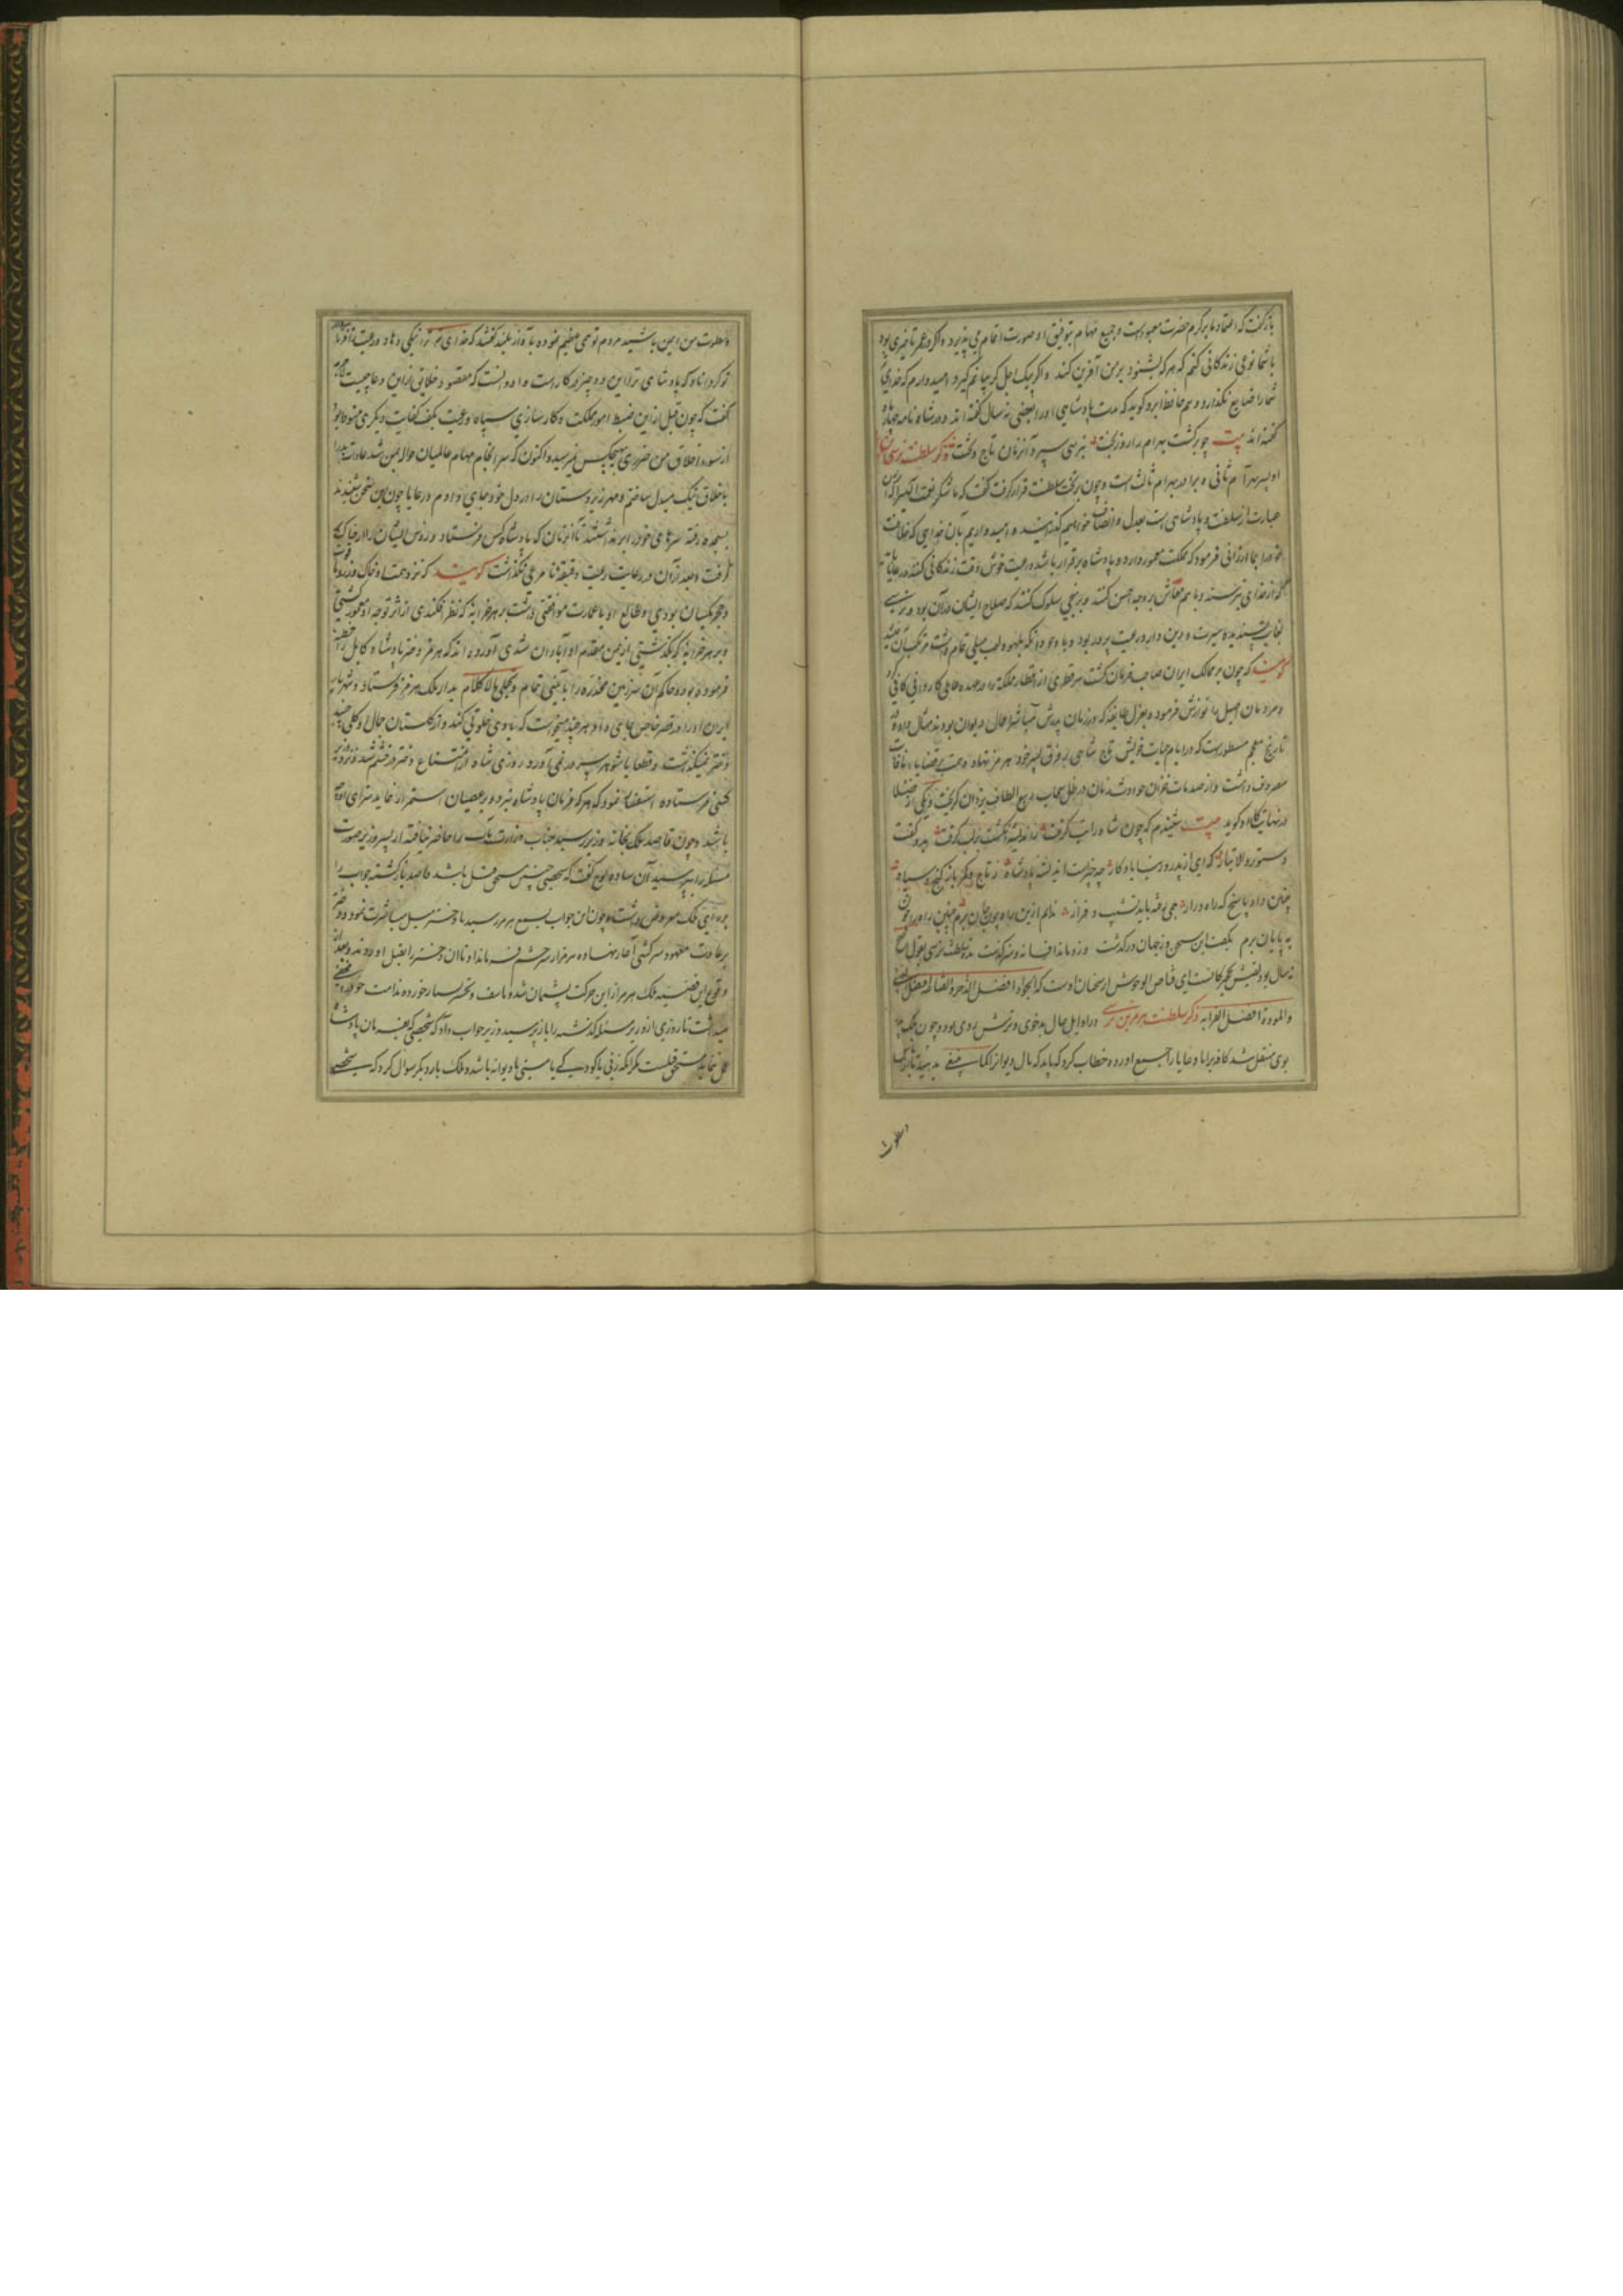 باز گفت که اعتماد ما بر کرم حضرت معبودست و جمیع مهام بتوفیق او صورت اتمام می پذیرد و اگر در عمر تاخیری بود
با شما نوعی زندگانی کنم که هر که بشنود بر من آفرین کند و اگر پیک اجل گریبانم گیرد امیدوارم که خدای
شما را ضایع نگذارد و حافظ ابرو گوید که مدت پادشاهی او را بعضی نه سال گفته اند و در شاه نامه چهار ماه
گفته اند بیت چو برگشت بهرام را روز بخت بنرسی سپرد آنزمان تاج و تخت ذکر سلطنت نرسی
او پسر بهرام ثانی و برادر بهرام ثالث است و چون بر تخت سلطنت قرار گرفت گفت که ما شکر نعمت
عبارت از سلطنت و پادشاهی است بعدل و انصاف خواهیم گذرانید و امیدواریم بآن خدایی که خلافت
خود را بما ارزانی فرمود که مملکت معمور دارد و پادشاه برقرار باشد و رعیت خوش وقت زندگانی کنند
از خدای بترسند و با هم معاش بر وجه احسن کنند و بر نهجی سلوک کنند که صلاح ایشان در آن بود و نرسی
بغایت پسندیده سیرت و دین دار و رعیت پرور بود و با وجود آنکه بلهو و لعب میلی تمام داشت مرتکب آن نمیشد
گویند که چون بر ممالک ایران صاحب فرمان گشت هر قطری از اقطار مملکت را در عهده عاملی کاردانی کافی کرد
و مردمان اصیل را نوازش فرمود و بعزل طایفه که در زمان پدرش مباشر اعمال دیوان بودند مثال داد و در
تاریخ معجم مسطورست که در ایام حیات خویش تاج شاهی بر فرق پسر خود هرمز نهاده
مصروف داشت و از صدمات خزان حوادث زمان در ظل سحاب ربیع الطاف یزدان گریخت و یکی از فضلا
در نهایت کار او گوید بیت شنیدم که چون شاه را تب گرفت ز اندیشه انگشت بر لب گرفت بدو گفت
دستور والا تبار که ای از پدر در جهان یادگار چه چیزست اندیشه پادشاه ز تاج و کمر یا ز گنج و سپاه
چنین داد پاسخ که راه دراز همی رفت باید نشیب و فراز ندانم ازین راه پوینده جان برم چنین راه را چون
به پایان برم بگفت این سخن وز جهان درگذشت ازو ماند افسانه و سرگذشت مدت سلطنت نرسی بقول اصح
نه سال بود
و المودة افضل القرابه ذکر سلطنت هرمز بن نرسی در اوایل حال بدخوی و ترش روی بود و چون ملک
بوی منتقل شد کافه برایا و رعایا را جمع آورده خطاب کرد که
سطوت
سطوت من ایمن باشید مردم تواضعی عظیم نموده بآواز بلند گفتند که خدای عز و جل ترا نیکی دهاد
توکرداناد که پادشاهی ترا این دو چیز در کارست و او دانست که مقصود خلایق ازین دعا چیست
گفت که چون قبل از این ضبط امور مملکت و کارسازی سپاه و رعیت بکف کفایت دیگری منوط بود
از سوء اخلاق من ضرری بهیچکس نمیرسید و اکنون که سرانجام مهام عالمیان حواله بمن شد عادات بد را
باخلاق نیک مبدل ساختم و مهر زیردستان را در دل خود جای دادم و رعایا چون این سخن شنیدند
بسجده رفته سرهای خود را بر نداشتند تا آنزمان که پادشاه کس فرستاد و رؤس ایشان را از خاک بر
گرفت و بعد از آن در رعایت رعیت دقیقه نامرعی نگذاشت گویند که نزد همت او خاک و زر
و حجر یکسان بودی و طالع او با عمارت موافقتی داشت بر هر خرابه که نظر افکندی از اثر توجه او معمور گشتی
و بر هر خرابه که بگذشتی از یمن مقدم او آبادان شدی آورده اند که هرمز دختر پادشاه کابل را خطبه
فرموده بود و حاکم آن سرزمین مخدره را بآیینی تمام و تجملی مالاکلام بدار ملک هرمز فرستاد و شهریار
ایران او را در قصر خاص جای داد و هر چند میخواست که با وی خلوتی کند و از گلستان جمال او گلی چیند
دختر نمیگذاشت و قطعا با شوهر سر در نمی آورد روزی شاه از امتناع دختر در خشم شد و نزد وزیر
کسی فرستاده استفسار نمود که هر که فرمان پادشاه نبرد و بر عصیان استمرار نماید سزای او چه
باشد و چون قاصد ملک بخانه وزیر رسید جناب وزارت مآب را حاضر نیافته از پسر وزیر صورت
مسئله را پرسید آن ساده لوح گفت که شخصی چنین مستحق قتل باشد قاصد بازگشته جواب را
بر رای ملک معروض داشت و چون این جواب بسمع هرمز رسید با دختر میل مباشرت نمود و دختر
بر عادت معهود سرکشی آغاز نهاده هرمز از سر خشم فرمان داد تا آن دختر را بقتل آوردند و بعد از
وقوع این قضیه ملک هرمز از این حرکت پشیمان شده تأسف و تحسر بسیار خورده ندامت
میداشت تا روزی از وزیر مسئله گذشته را باز پرسید وزیر جواب داد که شخصی که بفرمان پادشاه
عمل ننماید مستحق قتلست مگر آنکه زنی یا کودکی یا مستی یا دیوانه باشد و ملک بار دیگر سوال کرد که شخصی